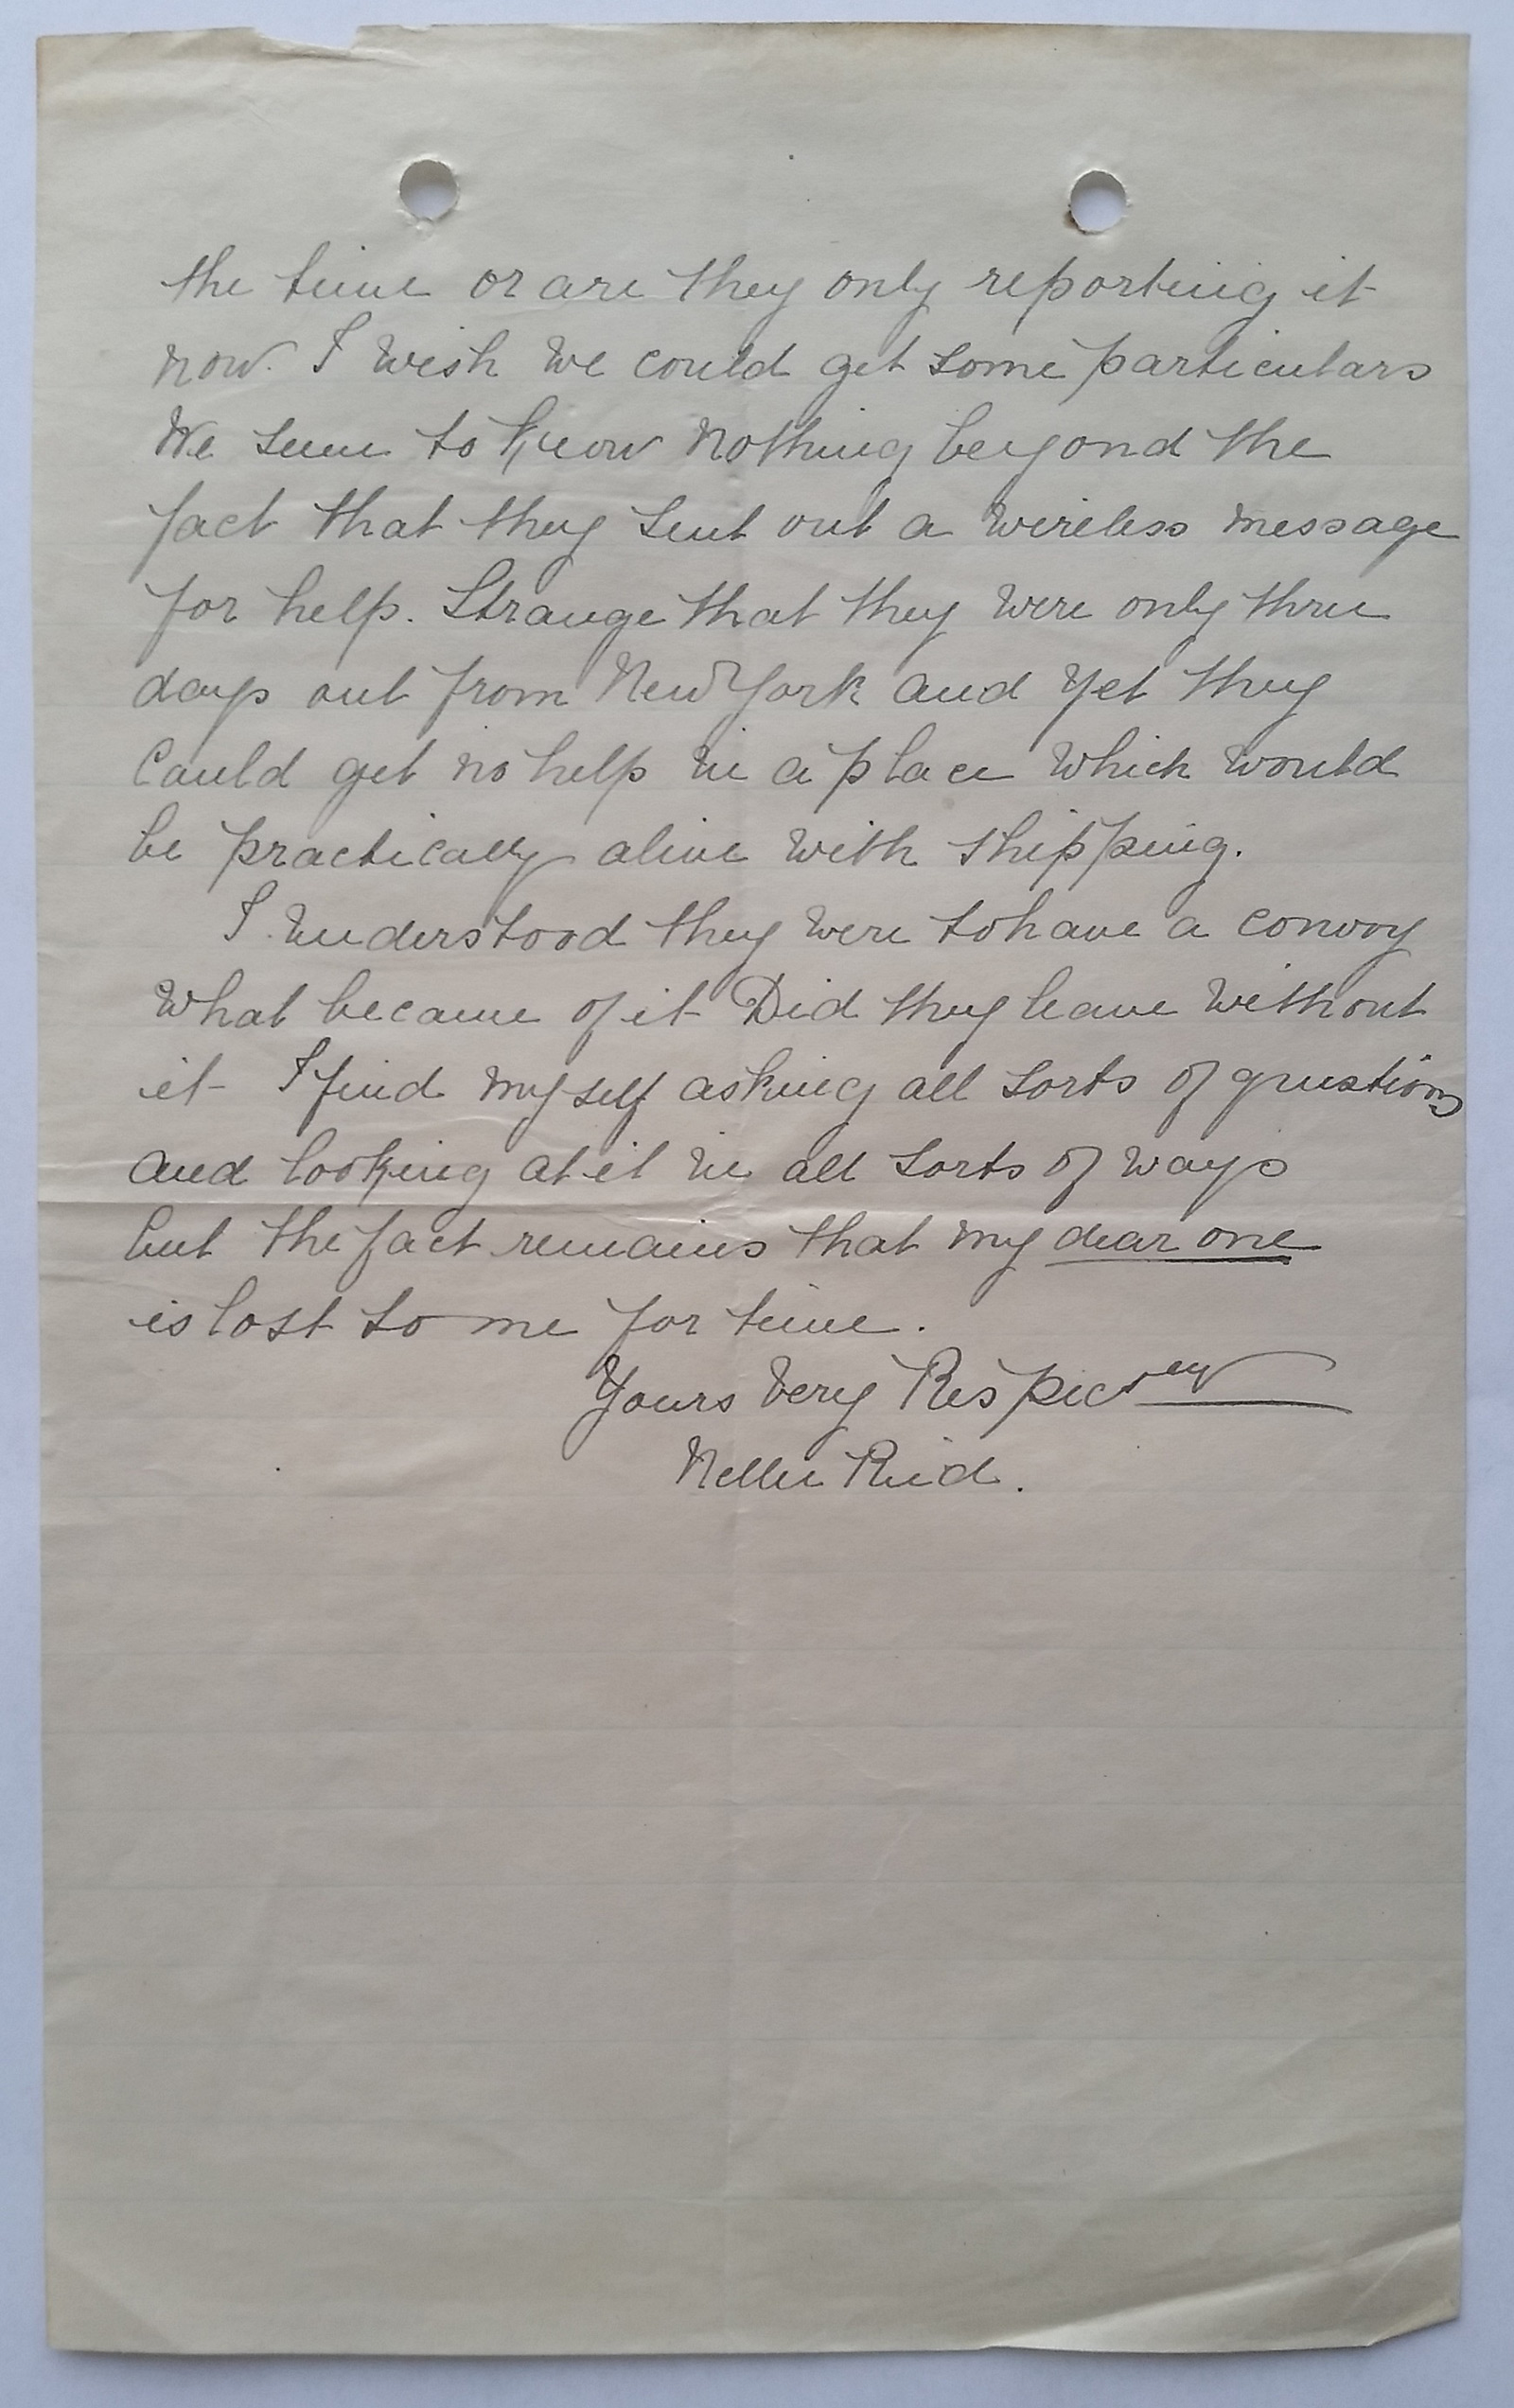 the time or are they only reporting it
now. I wish we could get some particulars
We seem to know nothing beyond the
fact that they sent out a wireless message
for help. Strange that they were only three
days out from New York and yet they
Could get no help in a place which would
be practically alive with shipping.
I understood they were to have a convoy
What became of it Did they leave without
it I find myself asking all sorts of questions
and looking at it in all sorts of ways
but the fact remains that my dear one
is lost to me for time.
Yours Very Respectly
Nellie Reid.